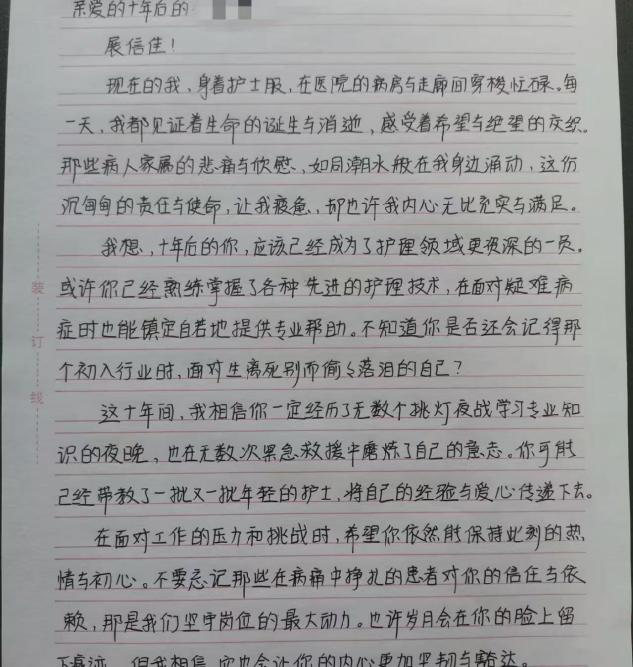 亲爱的十年后的
展信佳！
现在的我，身着护士服，在医院的病房与走廊间穿梭忙碌。每
一天，我都见证着生命的诞生与消逝，感受着希望与绝望的交织。
那些病人家属的悲痛与欣慰，如同潮水般在我身边涌动，这份
沉甸甸的责任与使命，让我疲惫，却也许我内心无比充实与满足。
我想，十年后的你，应该已经成为了护理领域更资深的一员。
或许你已经熟练掌握了各种先进的护理技术，在面对疑难病
症时也能镇定自若地提供专业帮助。不知道你是否还会记得那
个初入行业时，面对生离死别而偷々落泪的自己？
这十年间，我相信你一定经历了无数个挑灯夜战学习专业知
识的夜晚，也在无数次紧急救援中磨炼了自己的意志。你可能
已经带教了一批又一批年轻的护士，将自己的经验与爱心传递下去。
在面对工作的压力和挑战时，希望你依然能保持此刻的热
情与初心。不要忘记那些在病痛中挣扎的患者对你的信任与依
赖，那是我们坚守岗位的最大动力。也许岁月会在你的脸上留
下痕迹，但我相信，定也会让你的内心更加坚韧与豁达。
装
订
线